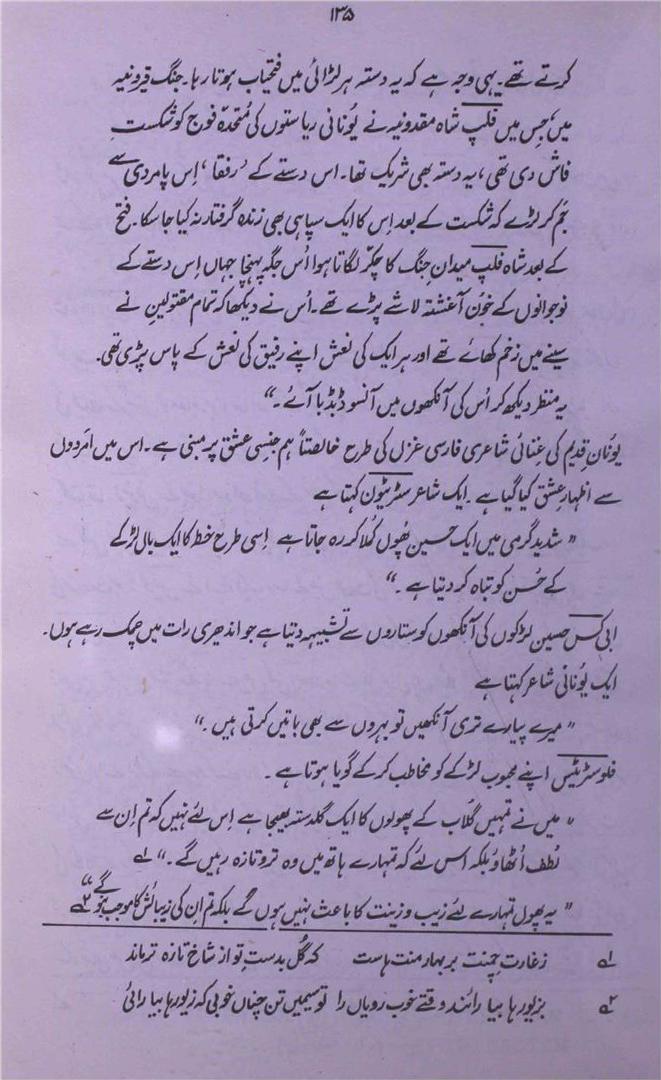 ۱۳۵
کرتے تھے۔ یہی وجہ ہے کہ یہ دستہ ہر لڑائی میں فتحیاب ہوتا رہا۔ جنگ قیرونیہ
میں، جس میں فلپ شاہ مقدونیہ نے یُونانی ریاستوں کی مُتحدّہ فوج کو شکستِ
فاش دی تھی، یہ دستہ بھی شریک تھا۔ اس دستے کے ’رفقا‘ اِس پامردی سے
جَم کر لڑے کہ شکست کے بعد اِس کا ایک سپاہی بھی زندہ گرفتار نہ کیا جا سکا۔ فتح
کے بعد شاہ فلپ میدانِ جنگ کا چکّر لگاتا ہوا اُس جگہ پہنچا جہاں اِس دستے کے
نوجوانوں کے خون آغشتہ لاشے پڑے تھے۔ اُس نے دیکھا کہ تمام مقتولین نے
سینے میں زخم کھائے تھے اور ہر ایک کی نعش اپنے رفیق کی نعش کے پاس پڑی تھی۔
یہ منظر دیکھ کر اُس کی آنکھوں میں آنسو ڈبڈبا آئے۔“
یُونانِ قدیم کی غِنائی شاعری فارسی غزل کی طرح خالصتاً ہم جنسی عشق پر مبنی ہے۔ اس میں امَردوں
سے اظہارِ عشق کیا گیا ہے۔ ایک شاعر سٹریٹون کہتا ہے
”شدید گرمی میں ایک حسین پھُول کُملا کر رہ جاتا ہے اِسی طرح خط کا ایک بال لڑکے
کے حُسن کو تباہ کر دیتا ہے۔“
ابی کس حسین لڑکوں کی آنکھوں کو ستاروں سے تشبیہہ دیتا ہے جو اندھیری رات میں چمک رہے ہوں۔
ایک یُونانی شاعر کہتا ہے
”میرے پیارے تری آنکھیں تو بہروں سے بھی باتیں کرتی ہیں۔“
فلوسٹریٹس اپنے محبوب لڑکے کو مخاطب کر کے گویا ہوتا ہے۔
”میں نے تمہیں گلاب کے پھولوں کا ایک گلدستہ بھیجا ہے اِس لئے نہیں کہ تم اِن سے
لُطف اُٹھاؤ بلکہ اس لئے کہ تمہارے ہاتھ میں وہ تر و تازہ رہیں گے۔“ ۱ے
”یہ پھول تمہارے لئے زیب و زینت کا باعث نہیں ہوں گے بلکہ تم اِن کی زیبائش کا موجب بنو گے“ ۲ے
۱ے زغارتِ چمنت بر بہار منت ہاست کہ گُل بدستِ تو از شاخ تازہ تر ماند
۲ے بزیورہا بیا رائند وقتے خوب رویاں را تو سیمیں تن چناں خوبی کہ زیورہا بیا رائی